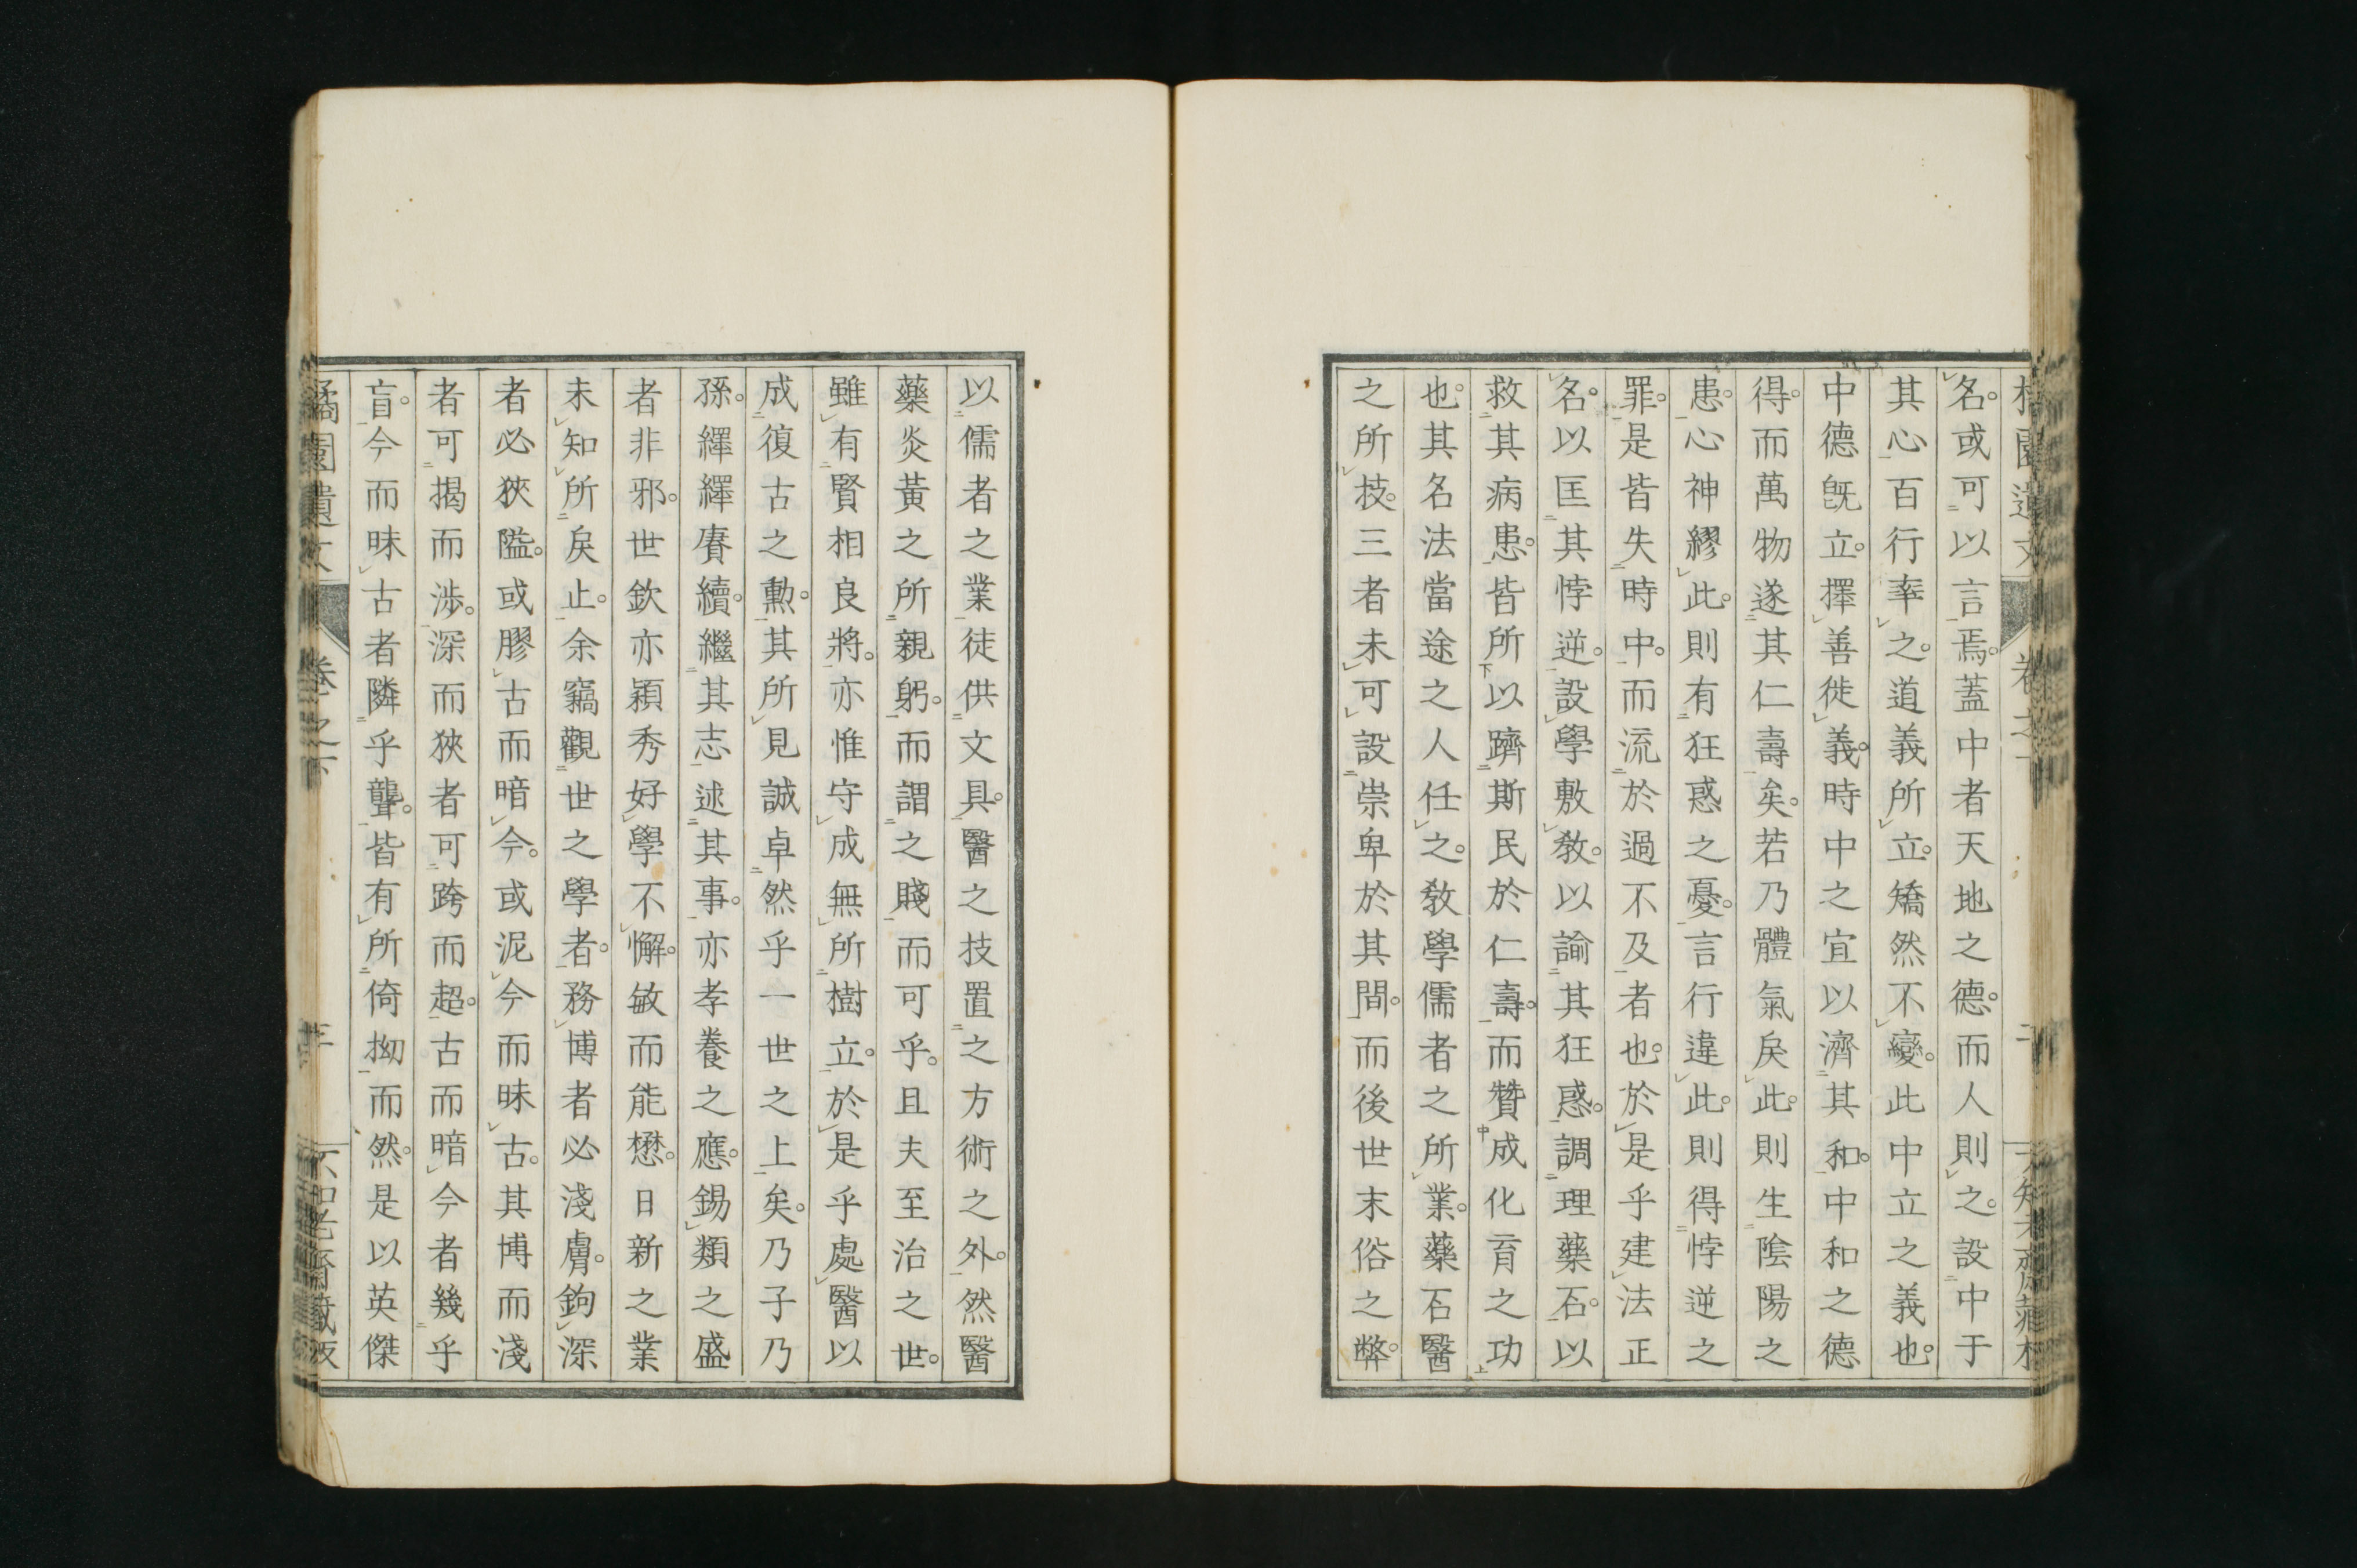 名。或可以言焉。蓋中者天地之德。而人則之。設中于
其心百行率之。道義所立。矯然不變。此中立之義也。
中德旣立。擇善徙義。時中之宜以濟其和。中和之德
得。而萬物遂其仁壽矣。若乃體氣戾此。則生陰陽之
患。心神繆此。則有狂惑之憂。言行違此。則得悖逆之
罪。是皆失時中。而流於過不及者也。於是乎建法正
名。以匡其悖逆。設學敷敎。以諭其狂惑。調理藥石。以
救其病患。皆所以躋斯民於仁壽。而贊成化育之功
也。其名法當途之人任之。敎學儒者之所業。藥石醫
之所技。三者未可設崇卑於其間。而後世末俗之弊。
以儒者之業徒供文具。醫之技置之方術之外。然醫
藥炎黃之所親躬。而謂之賤而可乎。且夫至治之世。
雖有賢相良將。亦惟守成無所樹立。於是乎處醫以
成復古之勲。其所見誠卓然乎一世之上矣。乃子乃
孫。繹繹賡續。繼其志述其事。亦孝養之應。錫類之盛
者非邪。世欽亦穎秀好學不懈。敏而能懋。日新之業
未知所戾止。余竊觀世之學者。務博者必淺膚。鉤深
者必狹隘。或膠古而暗今。或泥今而昧古。其博而淺
者可揭而涉。深而狹者可跨而超。古而暗今者幾乎
盲。今而昧古者隣乎聾。皆有所倚拗而然。是以英傑
橘園遺文 卷之下